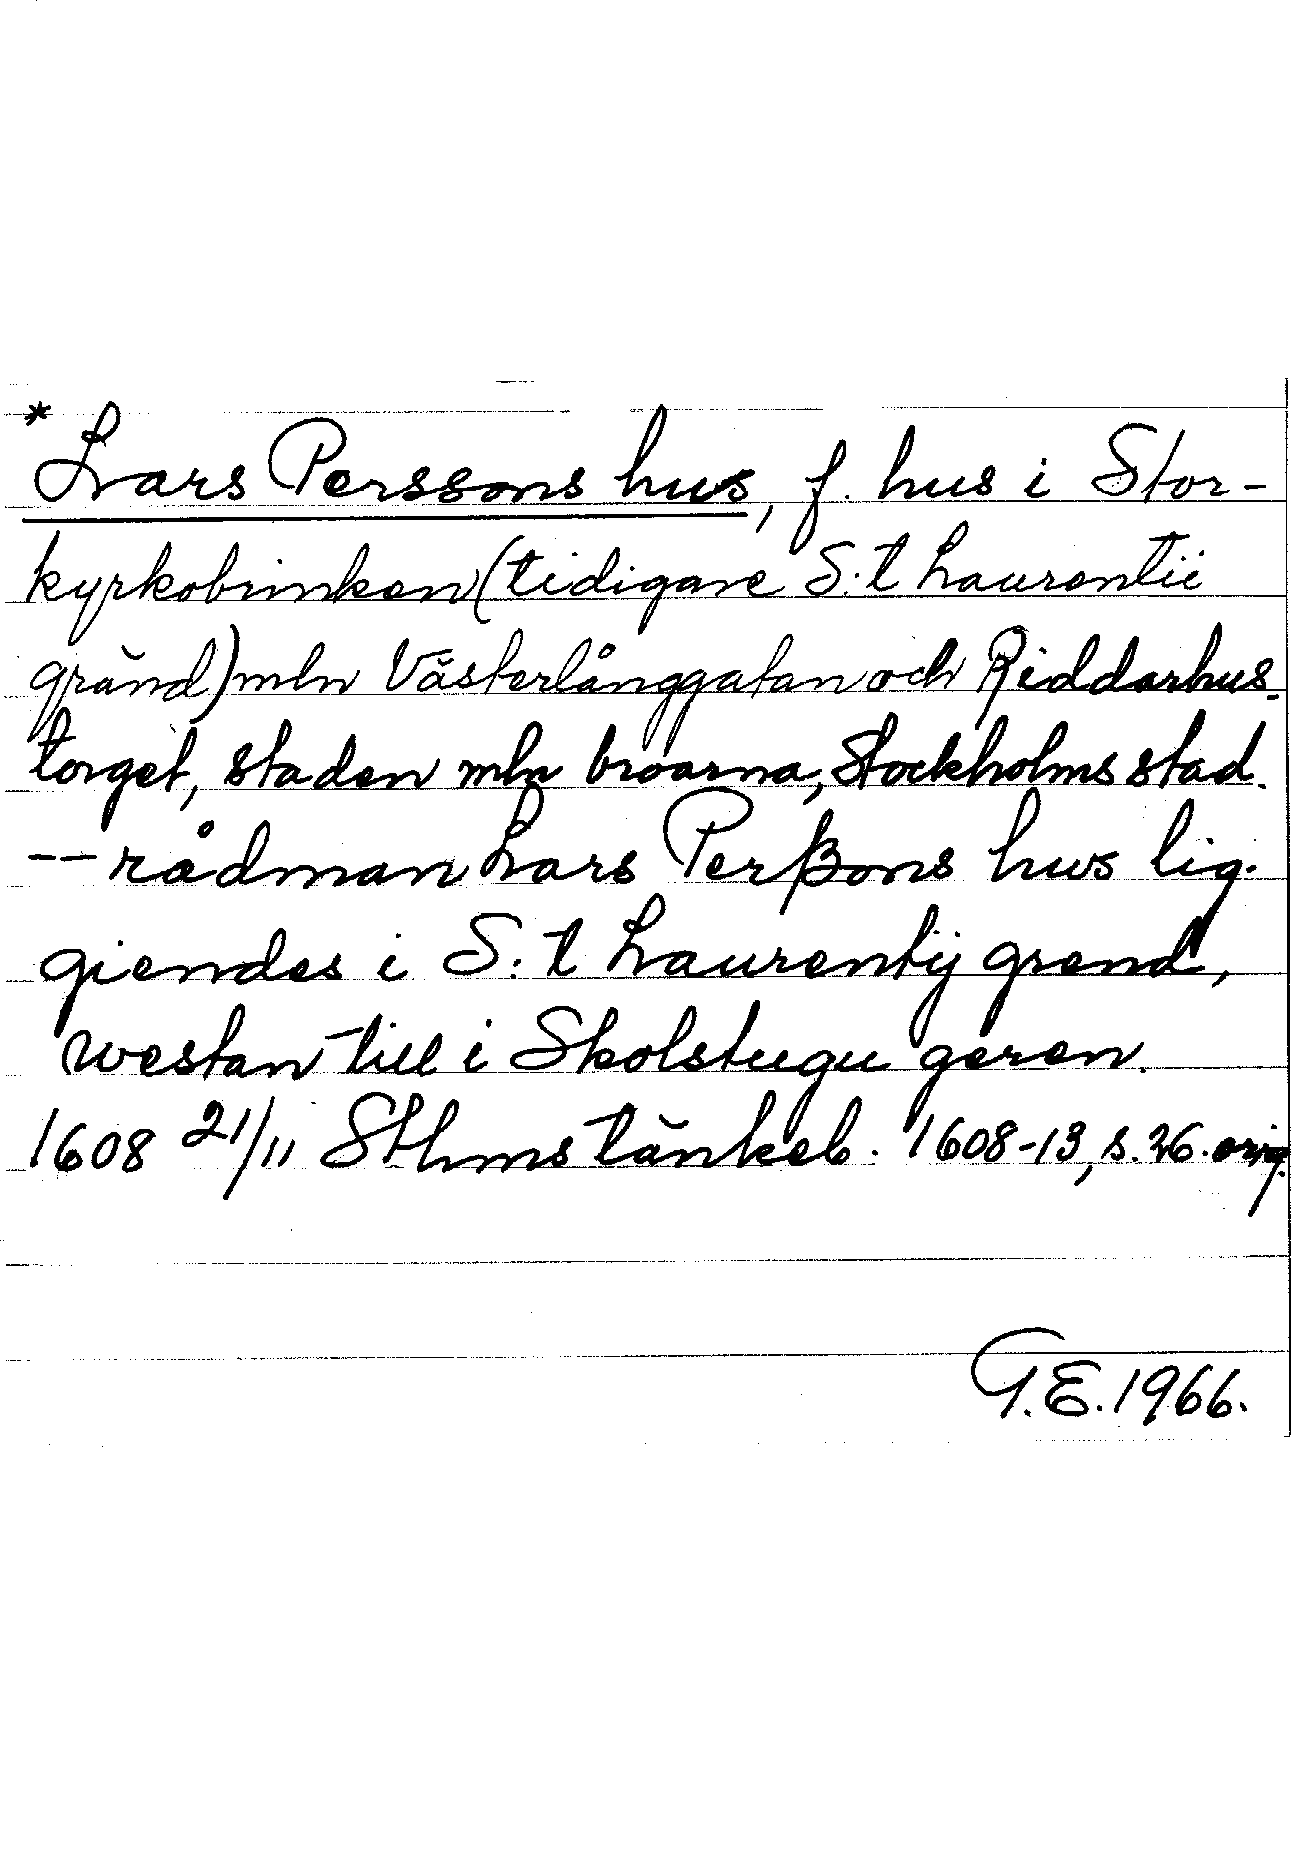 * Lars Perssons hus, f. hus i Stor-
kyrkobrinken (tidigare S:t Laurentii
gränd) mln Västerlånggatan och Riddarhus-
torget, staden mln broarna, Stockholms stad.
-- rådman Lars Perßons hws lig-
giendes i S:t Laurentij grend,
westan till i Skolstugu geren.
1608 21/11 Sthms tänkeb. 1608-13, s. 26. orig.
G.E. 1966.